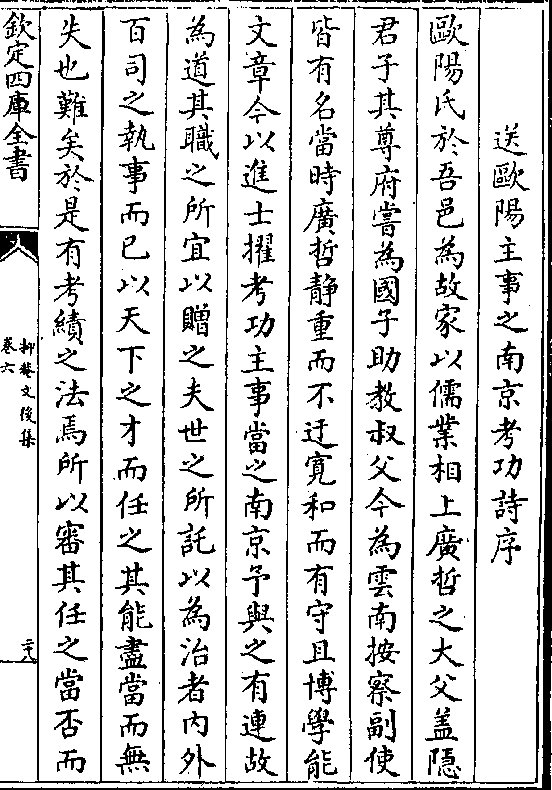 送歐陽主事之南京考功詩序
歐陽氏於吾邑為故家以儒業相上廣哲之大父盖隠
君子其尊府嘗為國子助教叔父今為雲南按察副使
皆有名當時廣哲静重而不迂寛和而有守且博學能
文章今以進士擢考功主事當之南京予與之有連故
為道其職之所宜以贈之夫世之所託以為治者内外
百司之執事而已以天下之才而任之其能盡當而無
失也難矣於是有考績之法焉所以審其任之當否而
欽定四庫全書
抑菴文後集
卷六
二十八